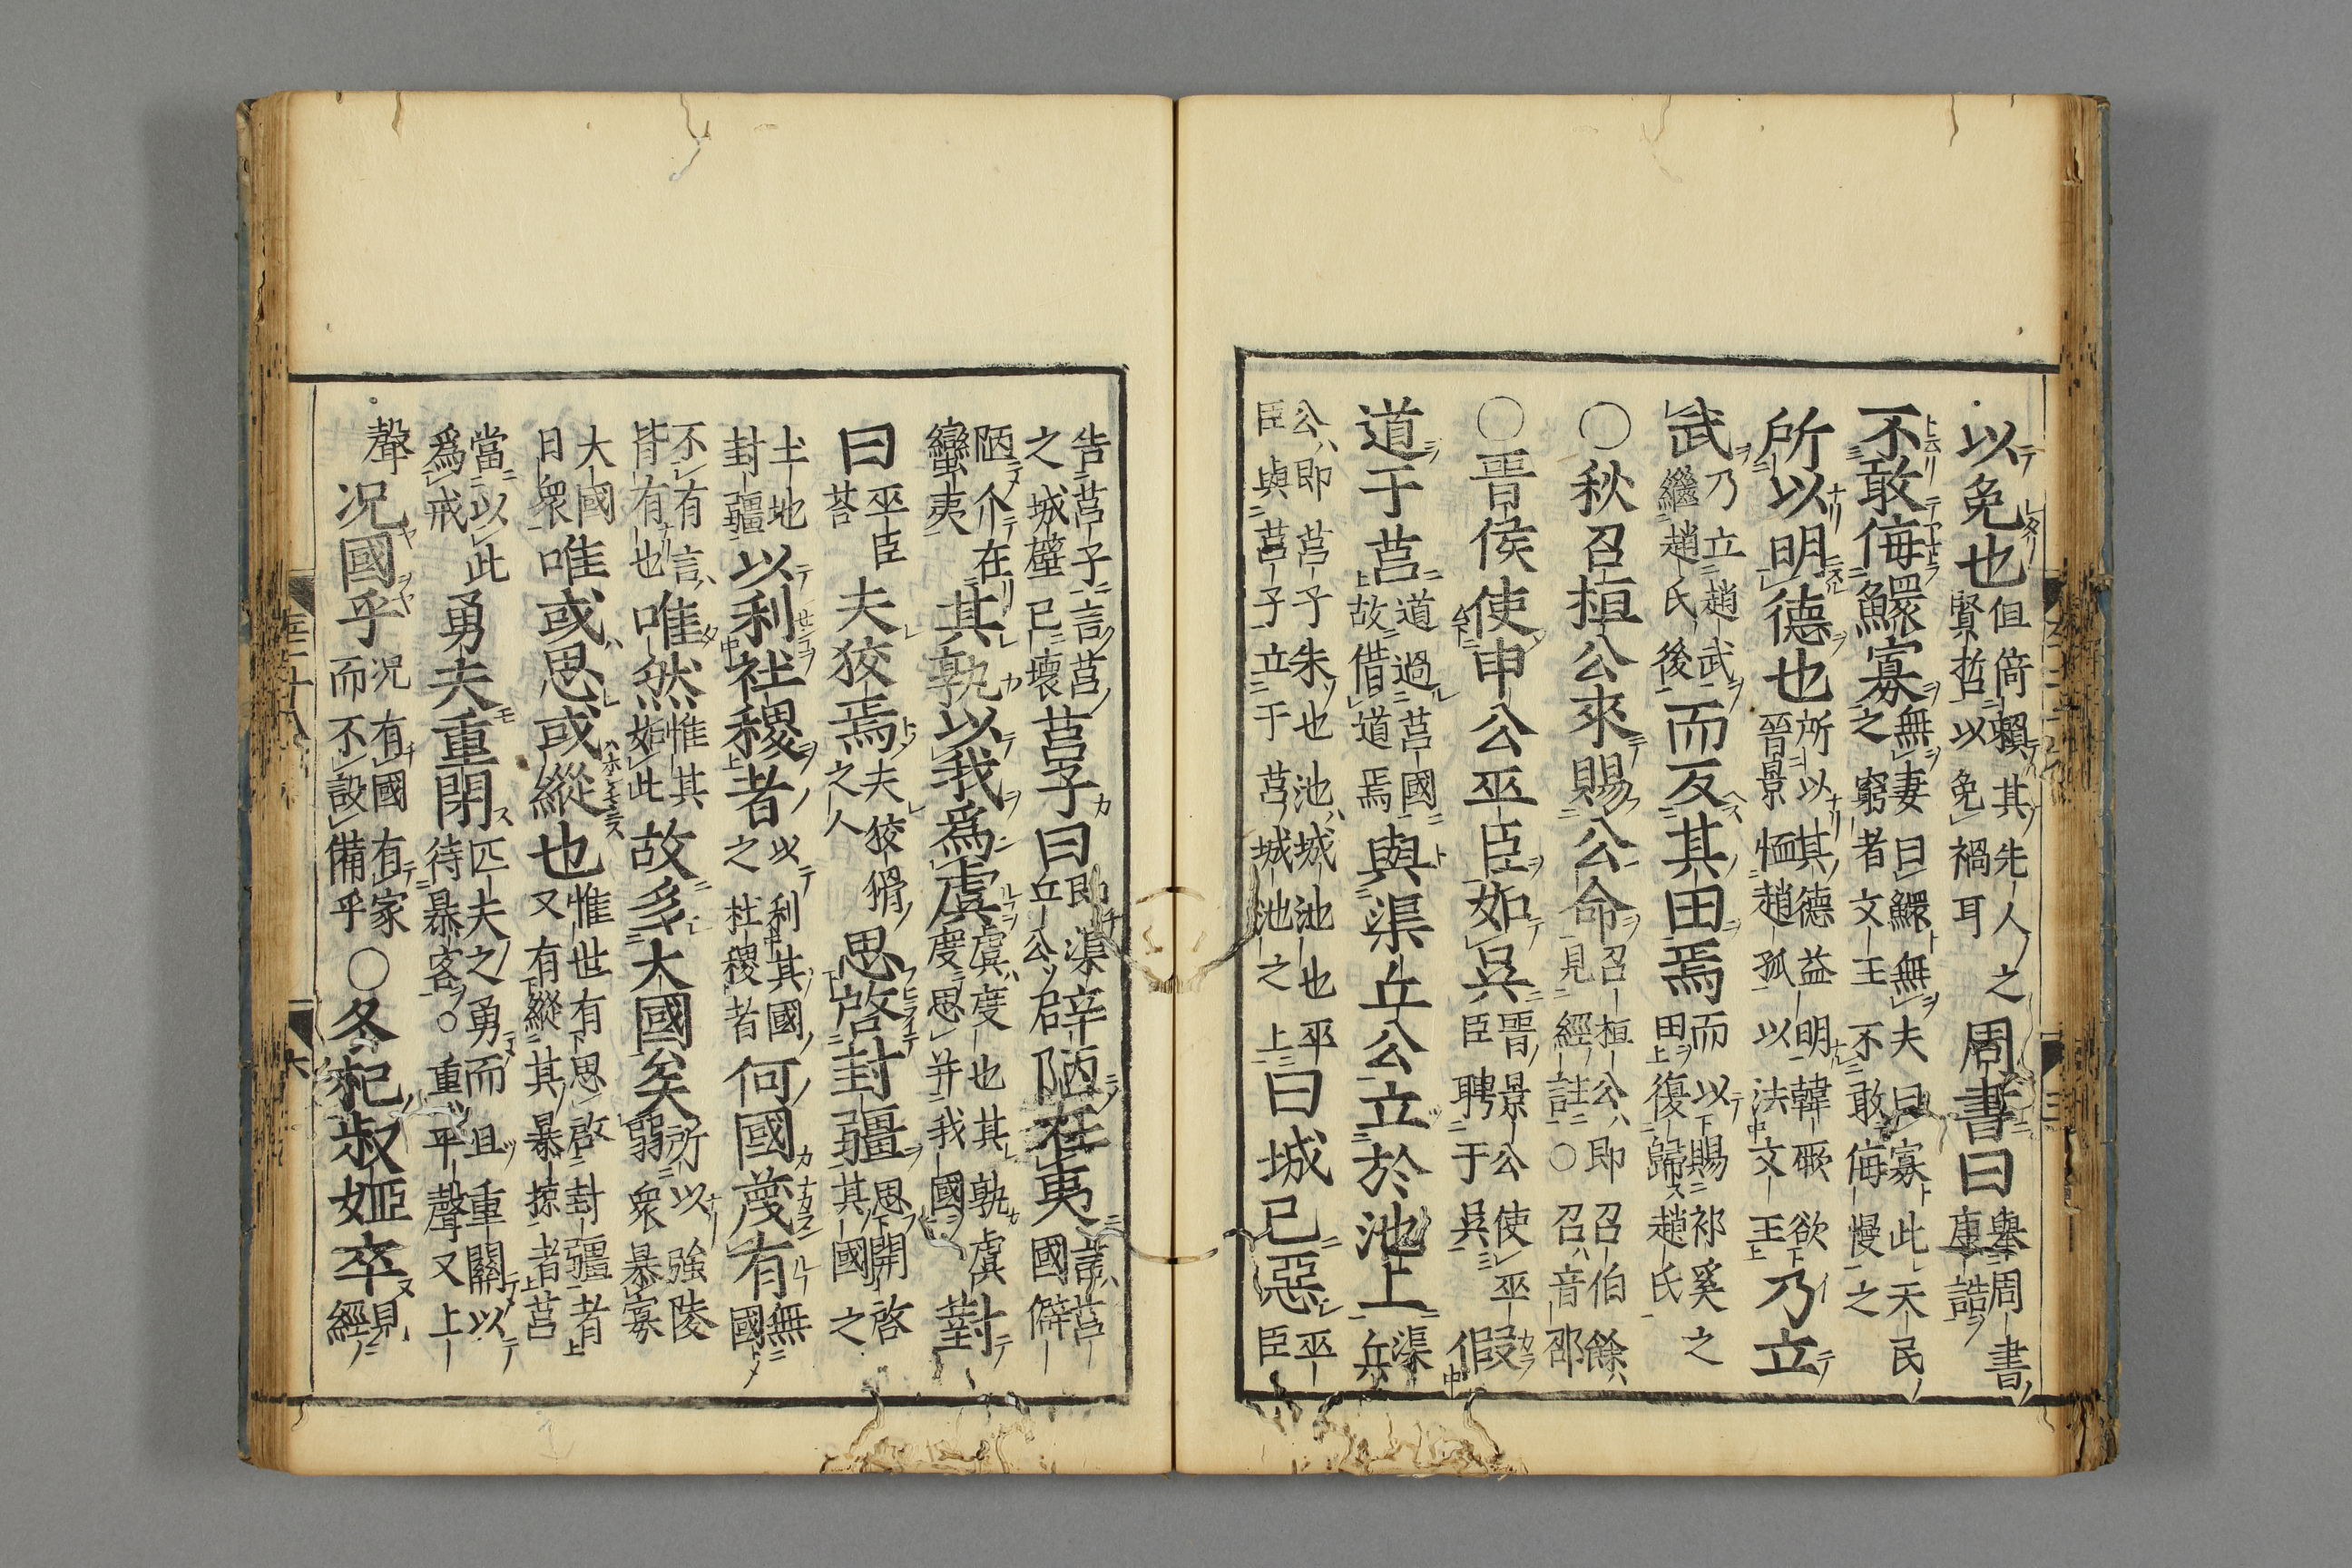 以免也但倚賴其先人之賢哲以免禍耳周書曰舉周書康誥
不敢侮鰥寡無妻曰鰥無夫曰寡此天民之窮者文王不敢侮慢之
所以明德也所以其德益明韓厥欲晉景恤趙孤以法文王乃立
武乃立趙武繼趙氏後而反其田焉而以賜祁奚之田復歸趙氏
○秋召桓公來賜公命召桓公即召伯餘見經註○召音邵
○晉侯使申公巫臣如吳晉景公使巫臣聘于吳假
道于莒道過莒國故借道焉與渠丘公立於池上渠丘
公即莒子朱也池城池也巫臣與莒子立于莒城池之上曰城已惡巫臣
告莒子言莒之城壁已壞莒子曰即渠丘公辟陋在夷言莒國僻
陋介在蠻夷其孰以我爲虞虞度也其孰虞度思并我國對
曰巫臣荅夫狡焉夫狡猾之人思啓封疆思開啓其國之
土地封疆以利社稷者以利其國之社稷者何國蔑有無國
不有言皆有也唯然惟其如此故多大國矣所以強陵弱衆暴寡
大國日衆唯或思或縱也惟世有思啓封疆者又有縱其暴掠者莒
當以此爲戒勇夫重閉匹夫之勇而且重關以待暴客○重平聲又上
聲況國乎況有國有家而不設備乎○冬杞叔姬卒見經